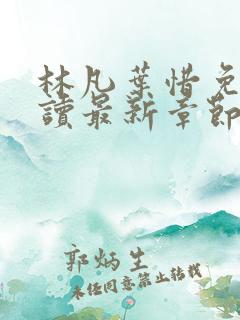 林凡葉惜免
讀最新章節
郭炳生
未经同意禁止转载